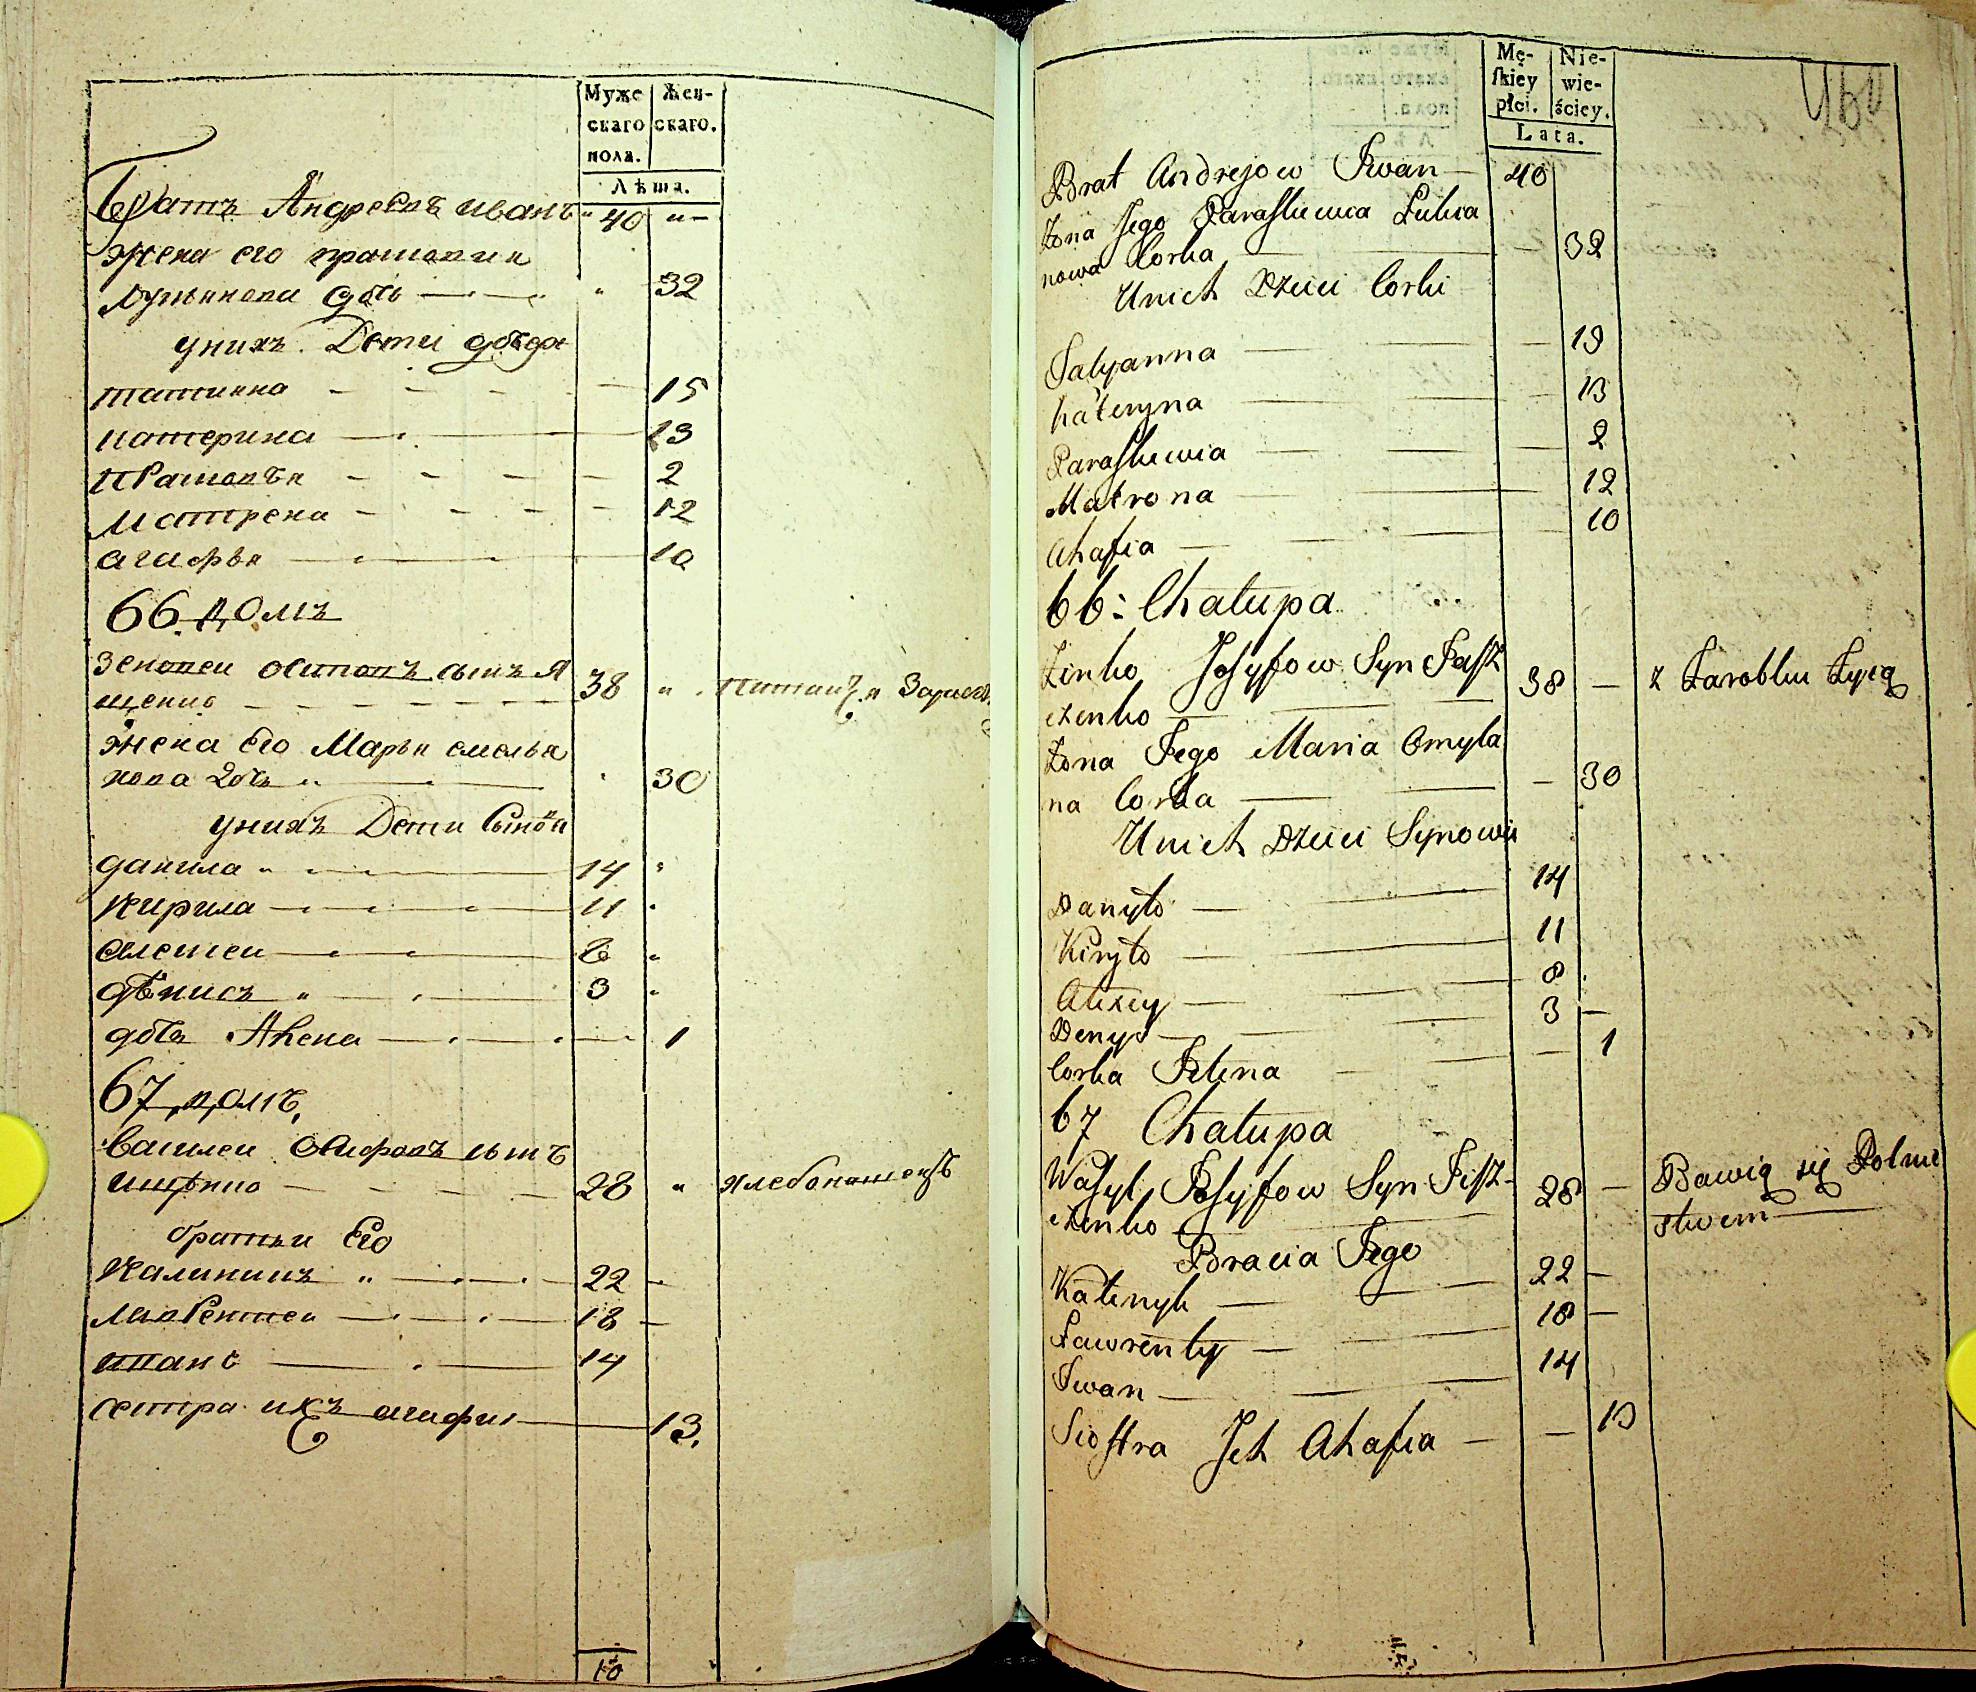 Муже
скаго
пола.
Жен-
скаго.
Лѣта.
Братъ Андреевъ иванъ " 40 " -
жена его прасковия
лукянова дочь — " 32
унихъ Дети дочери
татияна — 15
катерина — 13
Прасковья — 2
Матрена — 12
агафья — 10
66 домъ
Зеновеи осиповъ сынъ я
щенко — 38 "
жена Его Марья емелья
нова дочь " 30
унихъ Дети Сынов
данила " 14 "
Кирила — 11
алексеи — 8
дѣнисъ " 3
дочь Алена — 1
67 домъ,
василеи осиповъ сынъ
28 " хлебопашецъ
братьи Его
Калиникъ " 22
лаврентеи — 18
иванъ — 14
сестра ихъ агафия — 13.
10
Mę-
skiey
płci.
Nie-
wie-
ściey.
Lata.
460
Brat Andrejow Iwan — 40
Żona Jego Paraskiewia Łukia
nowa Corka — 32
Unich Dzieci Corki
Tatyanna — 19
Kateryna — 13
Paraskiewia — 2
Matrona — 12
Ahafia — 10
66: Chałupa
Zinko Josyfow Syn Jaszz
czenko — 38 — z Zarobku Żyią
Żona Jego Maria Omyla
na Corka — 30
Unich Dzieci Synowie
Danyło — 14
Kiryło — 11
Alexey — 8
Denys — 3 —
Corka Jelena — 1
67 Chałupa
Wasyl Josyfow Syn Jiszz-
czenko — 28 — Bawią się Rolni
ctwem
Bracia Jego
Kalenyk — 22 —
Ławrenty — 18 —
Iwan — 14
Siostra Jch Ahafia — 13